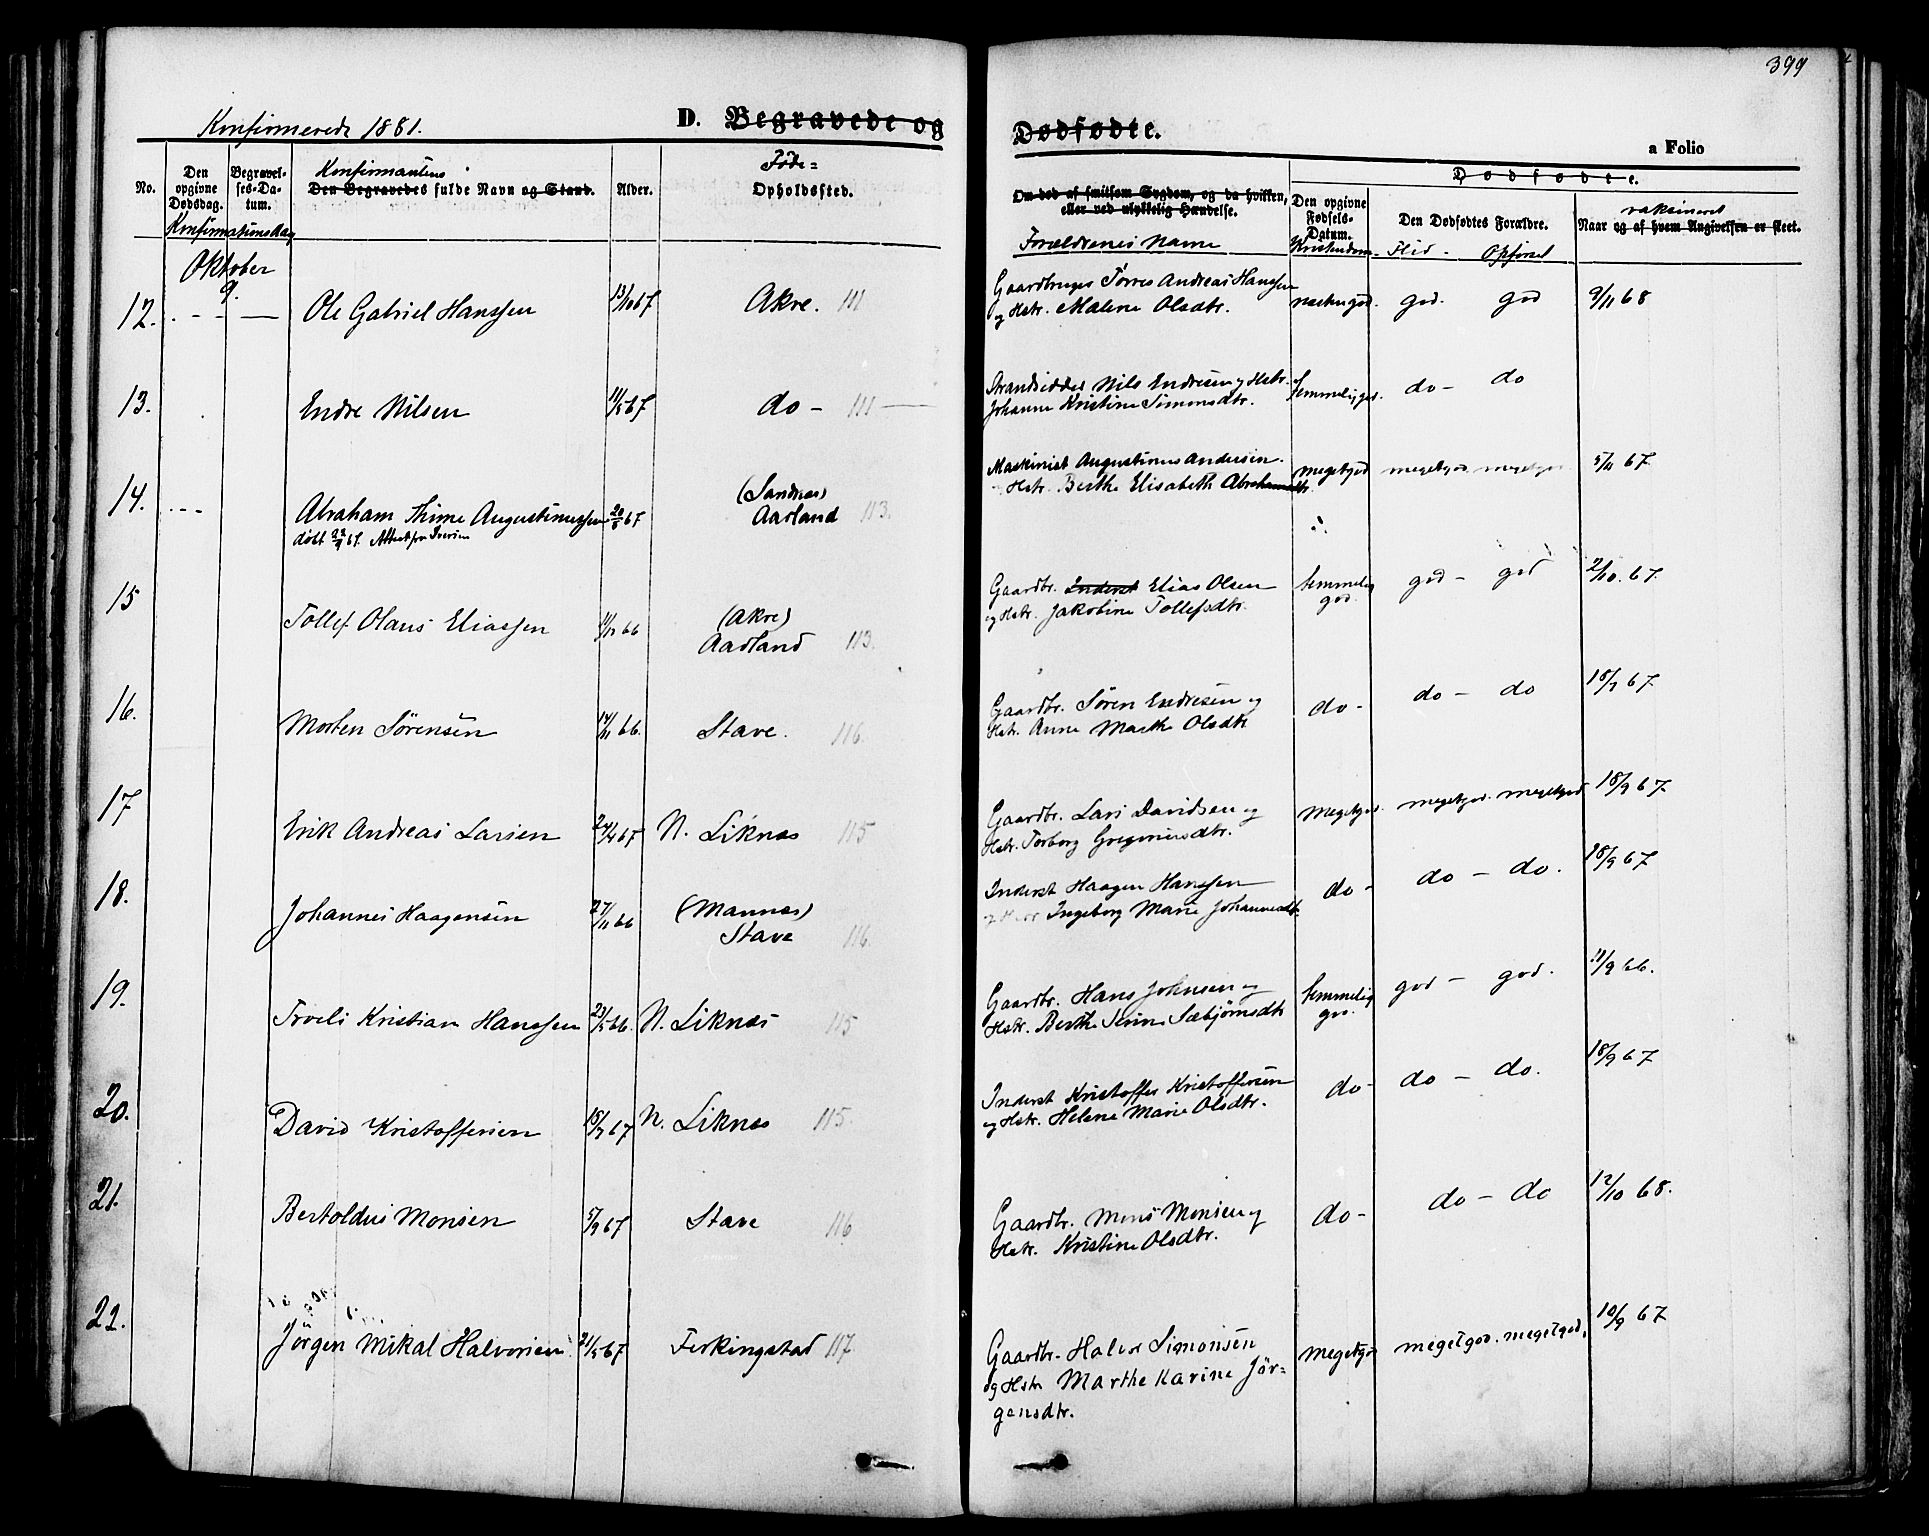 399
Konfirmerede 1881.
D. Begravede og Dødfødte.
a Folio
No.
Den opgivne Dødsdag.
Konfirmationsdag
Begravelses-Datum.
Konfirmantens
Den Begravedes fulde Navn og Stand.
Alder.
Føde=
Opholdssted.
Om død af smitsom Sygdom, og da hvilken, eller ved ulykkelig Hændelse.
Forældrenes Navne
Dødfødte.
Den opgivne Fødsels-Datum.
Kristendom
Den Dødfødtes Forældre.
Flid - Opførsel
vaksineret
Naar og af hvem Angivelsen er skeet.
Oktober
9.
12. - - - Ole Gabriel Hanssen 13/10 67 Akre. 111 Gaardbruger Tørres Andreas Hanssen
og Hstr. Malene Olsdtr. god. god 9/11 68
13. Endre Nilsen 11/5 67 do - 111 Strandsidder Nils Endresen og Hstr.
Johanne Kristine Simonsdtr. temmelig god. do - do
14. - - - Abraham Thime Augustinussen 20/8 67 (Sandnes)
Aadland 113. Maskinist Augustinus Andersen
Hstr. Berthe Elisabeth Abrahamsdtr. megetgod megetgod megetgod 5/11 67
døbt 22/9 67. Attest fra
15 Tollef Olaus Eliassen 11/12 66 (Akre)
Aadland 113. Gaardbr. Inderst Elias Olsen
og Hstr. Jakobine Tollefsdtr. temmelig
god. god - god 2/10. 67.
16. Morten Sørensen 14/11 66. Stave. 116. Gaardbr. Søren Endresen og
Hstr. Anne Marthe Olsdtr do - do - do 18/9 67
17 Erik Andreas Larsen 24/4 67 N. Liknes 115 Gaardbr. Lars Davidsen og
Hstr. Torborg Gregoriusdtr. Megetgod. megetgod. megetgod 18/9 67
18. Johannes Haagensen 27/11 66 (Mannes)
Stave 116. Inderst Haagen Hanssen
og Hstr Ingeborg Marie Johannesdtr. do - do - do. 18/9 67
19. Troels Kristian Hanssen 23/5 66. N. Liknes 115 Gaardbr. Hans Johnsen og
Hstr. Berthe Serine Sæbjørnsdtr temmelig
god. god - god. 11/9 66.
20. David Kristoffersen 15/7 67 N. Liknes 115. Inderst Kristoffer Kristoffersen
og Hstr. Helene Marie Olsdtr. do - do - do. 18/9 67
21. Bertoldus Monsen 5/9 67 Stave 116 Gaardbr. Mons Monsen og
Hstr. Kristine Olsdtr. do - do - do 12/10 68.
22. Jörgen Mikal Halvorsen 21/5 67 Ferkingstad 117. Gaardbr. Halvor Simonsen
og Hstr Marthe Karine Jör=
gensdtr. megetgod megetgod. megetgod. 10/9 67